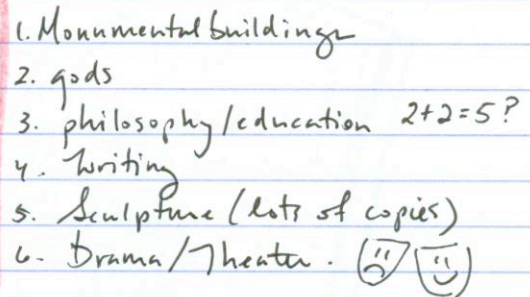 1. Monumental buildings
2. gods
3. philosophy/education 2+2=5?
4. Writing
5. Sculpture (lots of copies)
6. Drama/Theater.